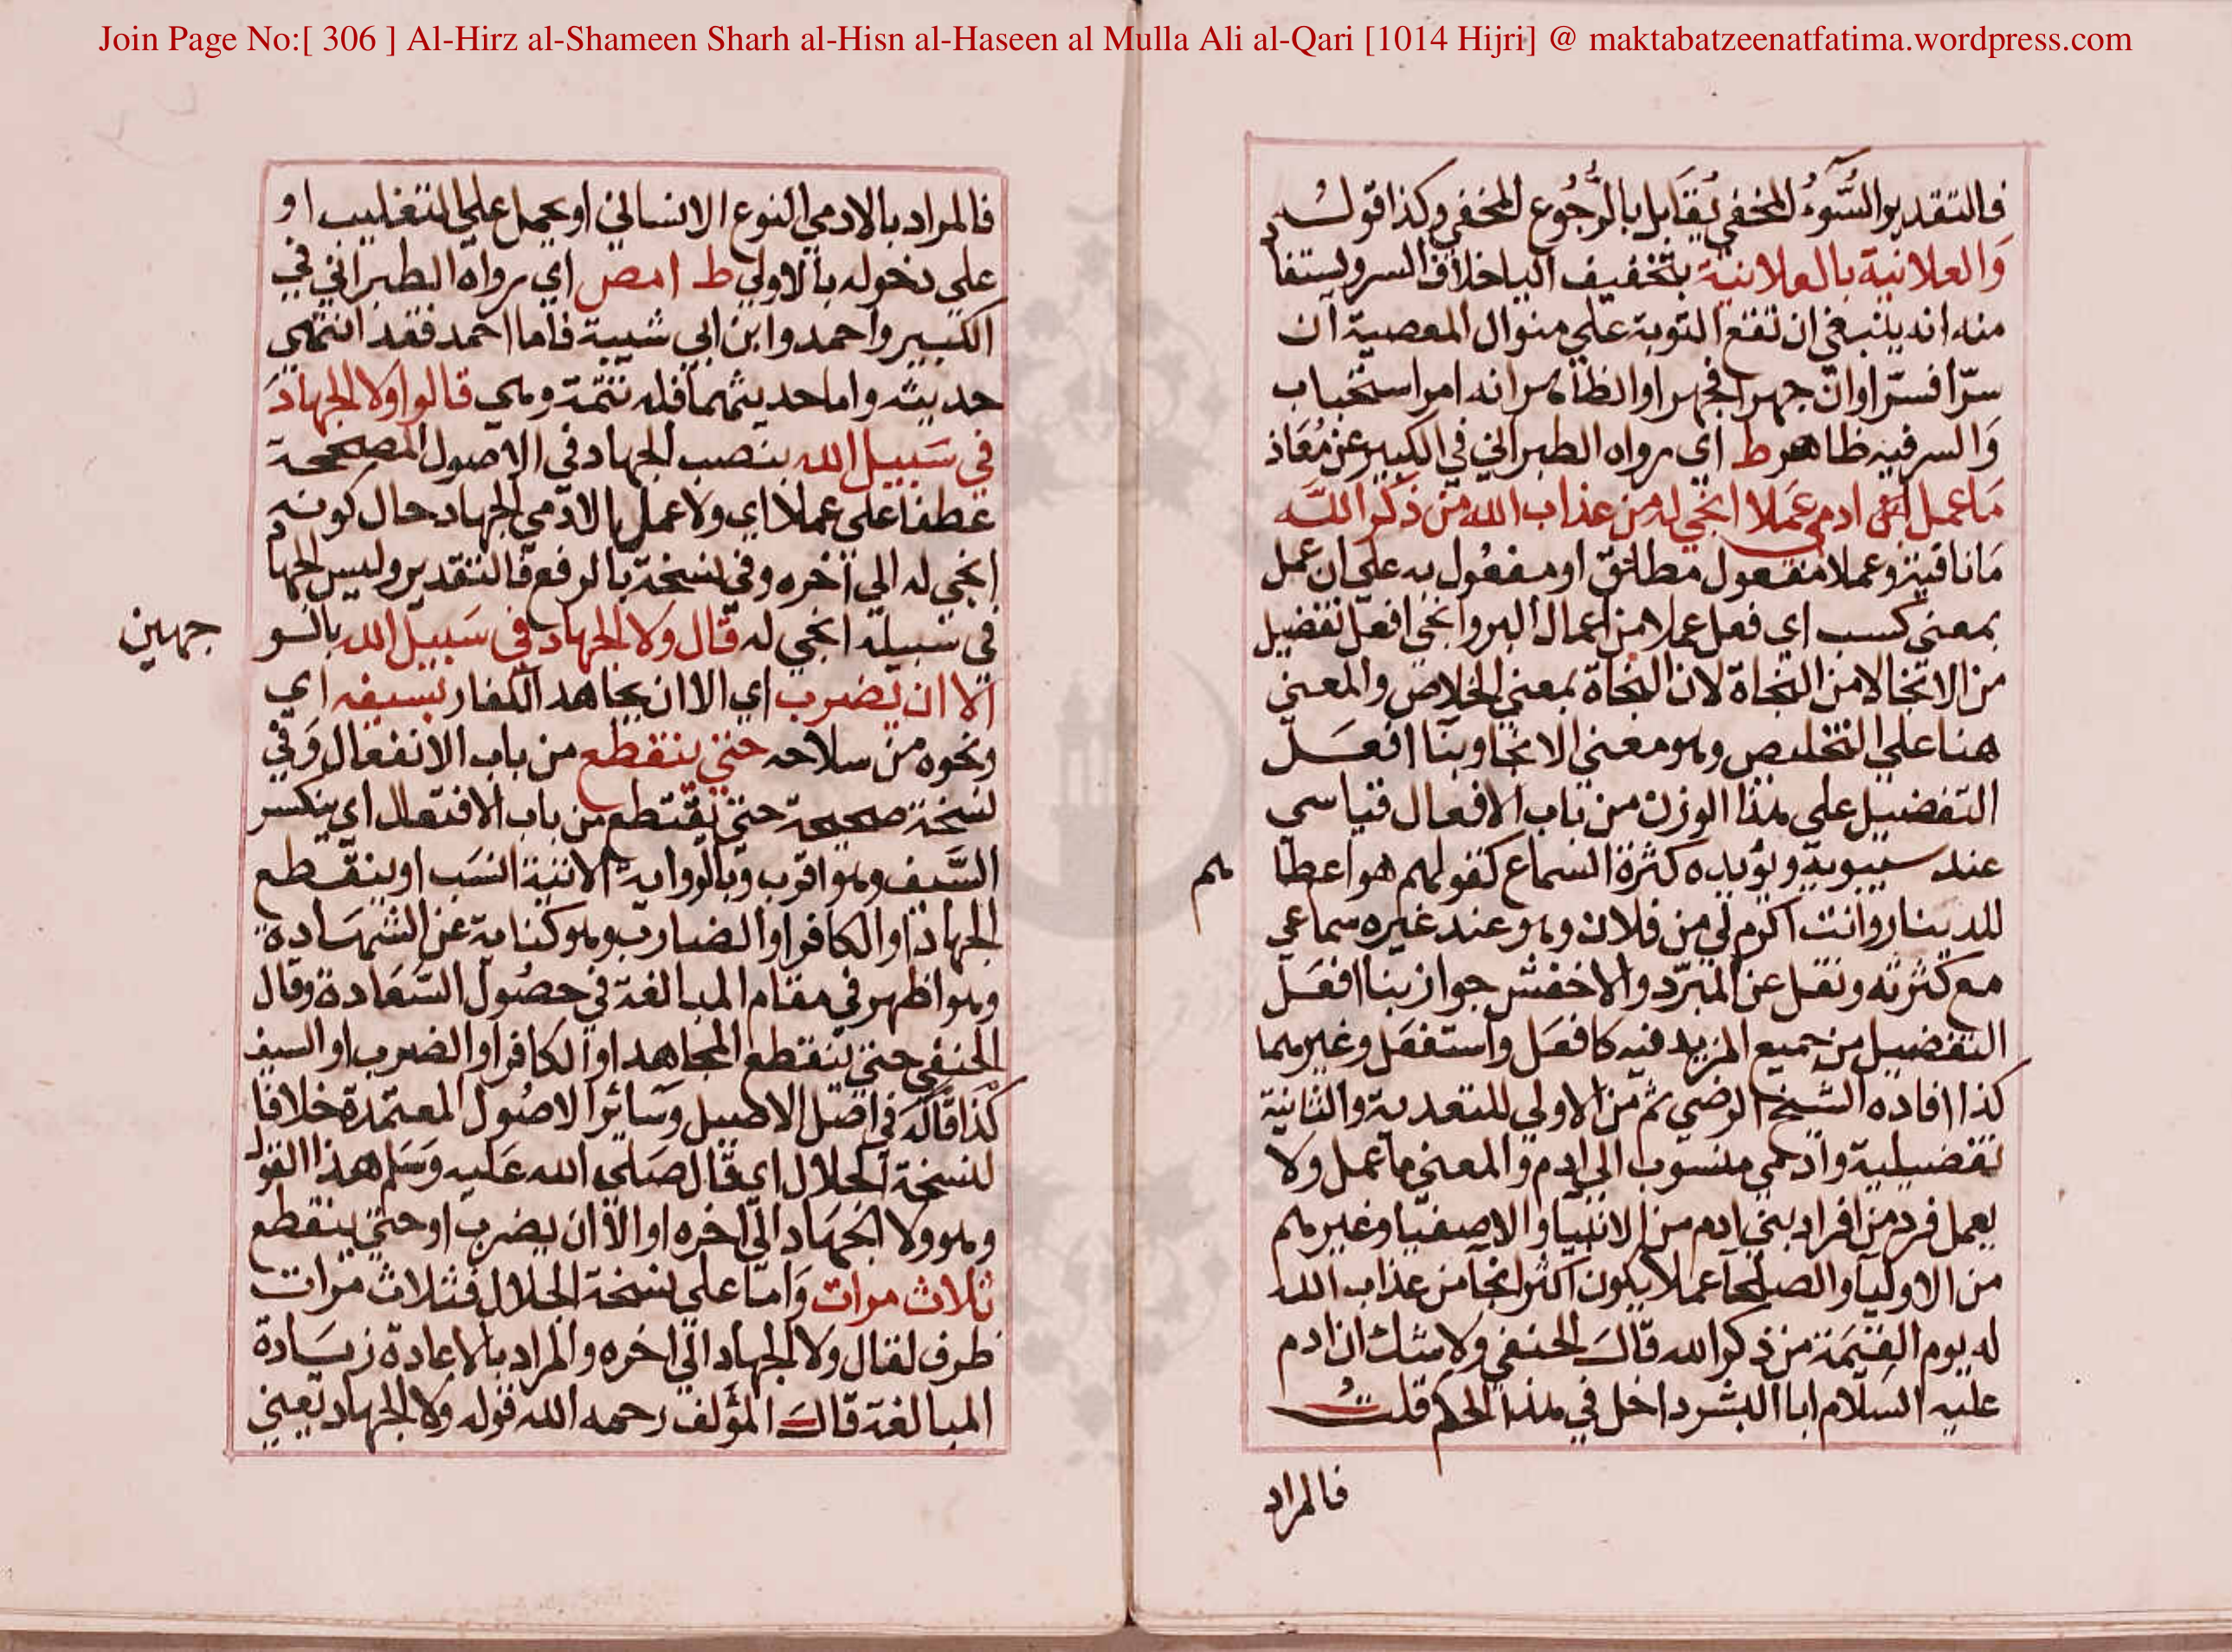 Join Page No:[ 306 ] Al-Hirz al-Shameen Sharh al-Hisn al-Haseen al Mulla Ali al-Qari [1014 Hijri] @ maktabatzeenatfatima.wordpress.com
فالتقدير السوء المخفي يقابل بالرجوع المخفي وكذا قوله
والعلانية بالعلانية بتخفيف اليا خلاف السر ويستفا
منه انه ينبغي ان تقع التوبة على منوال المعصية ان
سرا فسرا وان جهرا فجهرا والظاهر انه امر استحباب
والسر فيه ظاهر ط اي رواه الطبراني في الكبير عن معاذ
ما عمل ادمي عملا انجي له من عذاب الله من ذكر الله
ما نافية وعملا مفعول مطلق او مفعول به على ان عمل
بمعنى كسب اي فعل عملا من اعمال البر وانجي افعل تفضيل
من الانجا لا من النجاة لان النجاة بمعنى الخلاص والمعنى
هنا على التخليص وهو معنى الانجا وبنا افعل
التفضيل على هذا الوزن من باب الافعال قياسي
عند سيبويه ويؤيده كثرة السماع كقولهم هو اعطا
هم
للدينار وانت اكرم لي من فلان وهو عند غيره سماعي
مع كثرته ونقل عن المبرد والاخفش جواز بنا افعل
التفضيل من جميع المزيد فيه كافعل واستفعل وغيرهما
كذا افاده الشيخ الرضي ثم من الاولي للتعدية والثانية
تفضيلية وادمي منسوب الى ادم والمعنى ما عمل ولا
يعمل فرد من افراد بني ادم من الانبيا والاصفيا وغيرهم
من الاوليا والصلحا عملا يكون اكثر انجا من عذاب الله
له يوم القيمة من ذكر الله قال الحنفي ولا شك ان ادم
عليه السلام ابا البشر داخل في هذا الحكم قلت
فالمراد
فالمراد بالادمي النوع الانساني او يحمل على التغليب او
على دخوله بالاولي ط ا مص اي رواه الطبراني في
الكبير واحمد وابن ابي شيبة فاما احمد فقد انتهي
حديثه واما حديثهما فله تتمة وهي قالوا ولا الجهاد
في سبيل الله بنصب الجهاد في الاصول المصححة
عطفا على عملا اي ولا عمل الادمي الجهاد حال كونه
انجي له الى اخره وفي نسخة بالرفع فالتقدير وليس الجها
في سبيله انجي له قال ولا الجهاد في سبيل الله بالسو
جهين
الا ان يضرب اي الا ان يجاهد الكفار بسيفه اي
ونحوه من سلاحه حتى ينقطع من باب الانفعال وفي
نسخة صحيحة حتى يقتطع من باب الافتعال اي ينكسر
السيف وهو اقرب وبالرواية الاتية انسب او ينقطع
الجهاد او الكافر او الضارب وهو كناية عن الشهادة
وهو اظهر في مقام المبالغة في حصول السعادة وقال
الحنفي حتى ينقطع المجاهد او الكافر او الضرب او السيف
كذا قاله في اصل الاصيل وسائر الاصول المعتمدة خلافا
لنسخة الجلال اي قال صلى الله عليه وسلم هذا القول
وهو ولا الجهاد الى اخره او الا ان يضرب او حتى ينقطع
ثلاث مرات واما على نسخة الجلال فثلاث مرات
ظرف لقال ولا الجهاد الى اخره والمراد بالاعادة زيادة
المبالغة قال المؤلف رحمه الله قوله ولا الجهاد يعني